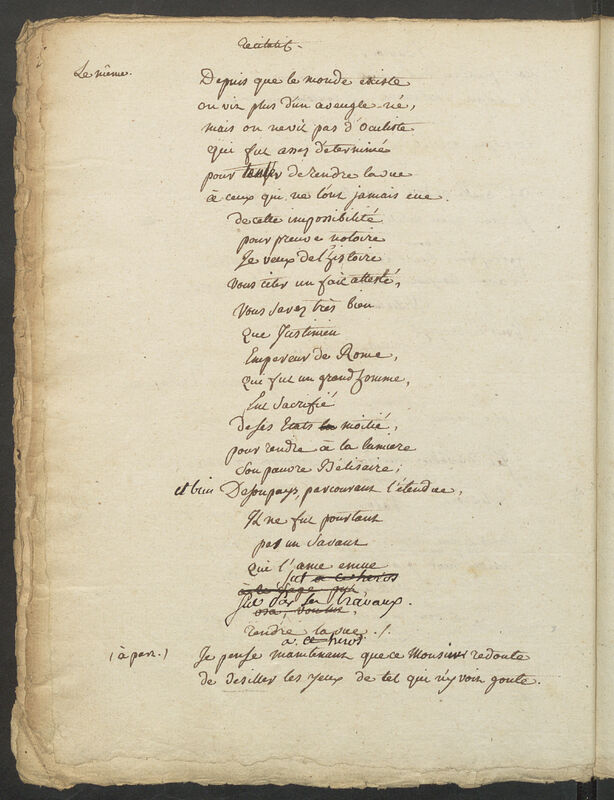 Recitatif.
Le même.
Depuis que le monde existe
on vit plus d'un aveugle-né,
mais on ne vit pas d'oculiste
qui fut assez déterminé
pour tenter de rendre la vue
à ceux qui ne l'ont jamais eue.
de cette impossibilité
pour preuve notoire
Je veux de l'histoire
vous citer un fait attesté,
vous savez très bien
que Justinien
Empereur de Rome,
qui fut un grand homme,
Eut sacrifié
de ses Etats la moitié,
pour rendre à la lumiere
Son pauvre Bélisaire;
et bien De son pays, parcourant l'étendue,
Il ne fut pourtant
pas un Savant
Qui l'ame emue
fut a ce heros
fut par ses travaux.
osa, vouloir,
rendre la vue !
a ce heros
(à part.) Je pense maintenant que ce Monsieur redoute
de desiller les yeux de tel qui n'y voit goute.